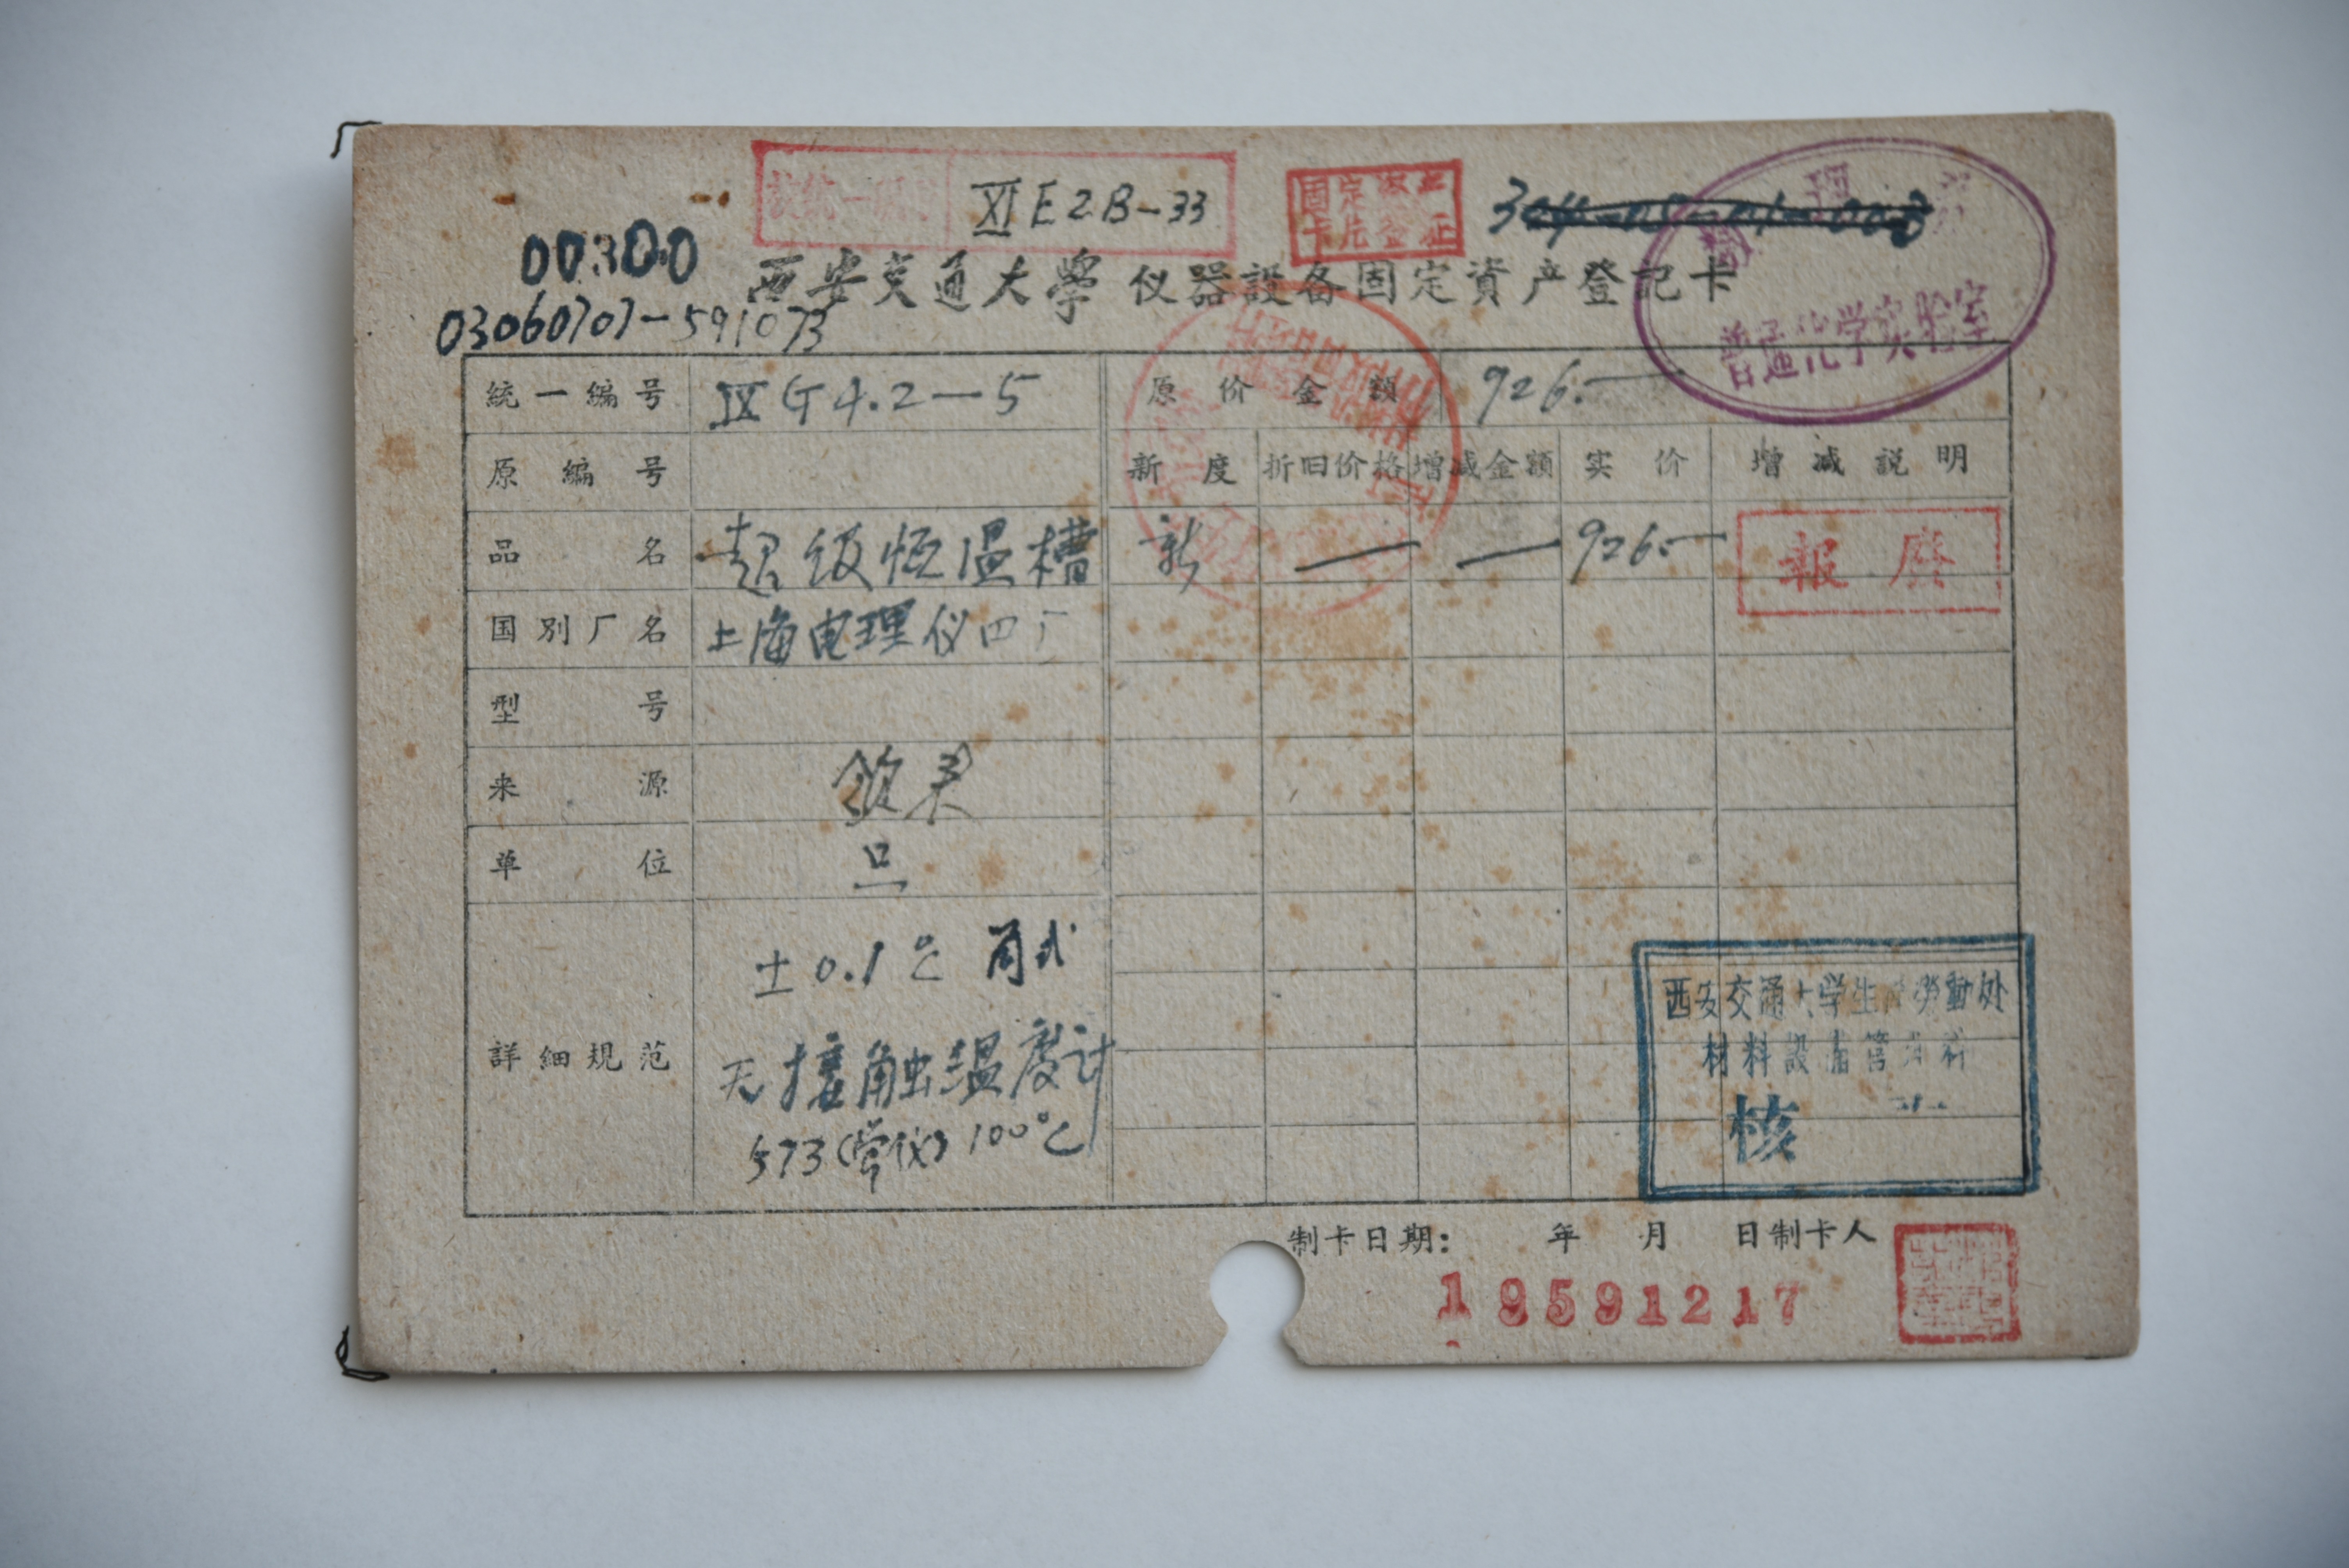 XI E2B-33
固定資产
卡片簽証
00300
西安交通大學 仪器設备固定資产登记卡
03060707-591073
普通化学实验室
統一編号 IX G4.2-5 原价金額 926.-
原編号 新度 折旧价格 增减金額 实价 增减説明
品名 超级恒温槽 新 — — 926.-
報廢
国别厂名 上海电理仪四厂
型号
来源
单位 只
±0.1℃ 筒式
詳細規范 无接触温度计
573(常仪) 100℃
西安交通大学生产劳動处
材料設备管理科
核
制卡日期: 年 月 日 制卡人
19591217